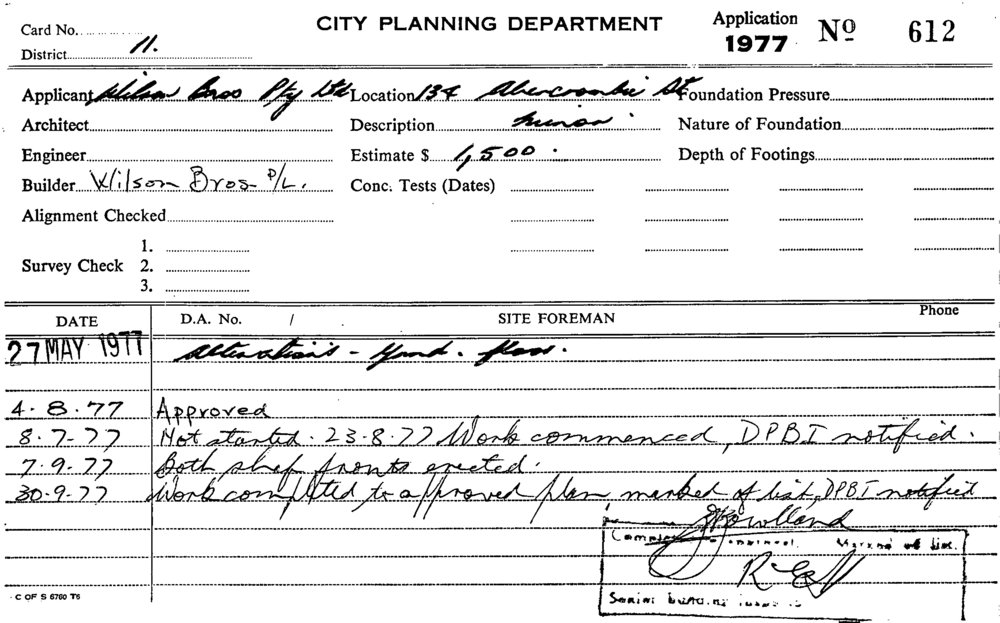 Card No.
CITY PLANNING DEPARTMENT
Application
1977
Nº 612
District 11.
Applicant Wilson Bros Pty Ltd Location 134 Abercrombie St Foundation Pressure
Architect Description minor. Nature of Foundation
Engineer Estimate $ 1,500. Depth of Footings
Builder Wilson Bros P/L. Conc. Tests (Dates)
Alignment Checked
1.
Survey Check 2.
3.
DATE D.A. No. / SITE FOREMAN Phone
27 MAY 1977 Alterations - Grnd. floor.
4.8.77 Approved
8.7.77 Not started. 23.8.77 Work commenced, DPBI notified.
7.9.77 Both shop fronts erected.
30.9.77 Work completed to approved plan marked of list, DPBI notified
JRowlland
Marked of list.
C OF S 6760 T6